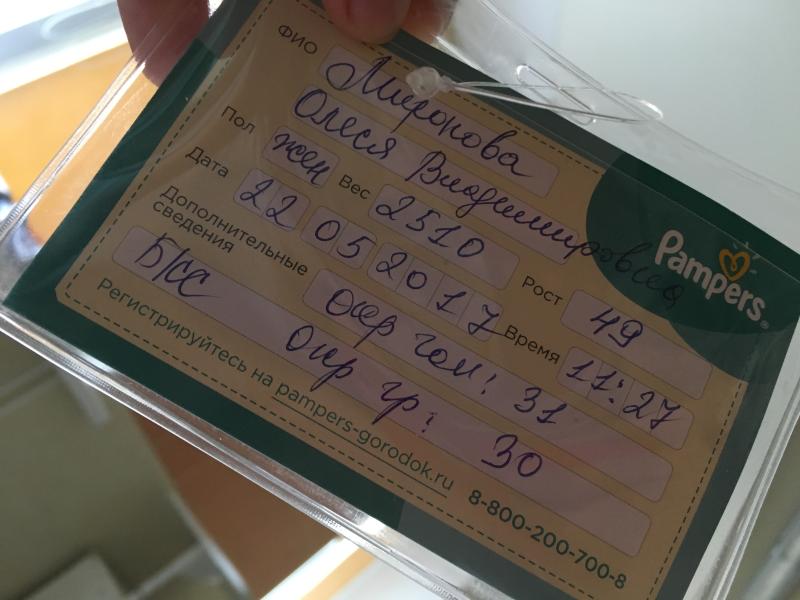 ФИО Миронова
Олеся Владимировна
Пол жен Вес 2510 Рост 49
Дата 22 05 2017 Время 11:27
Дополнительные
сведения
окр гол: 31
Б/СС окр гр: 30
Регистрируйтесь на pampers-gorodok.ru 8-800-200-700-8
Pampers